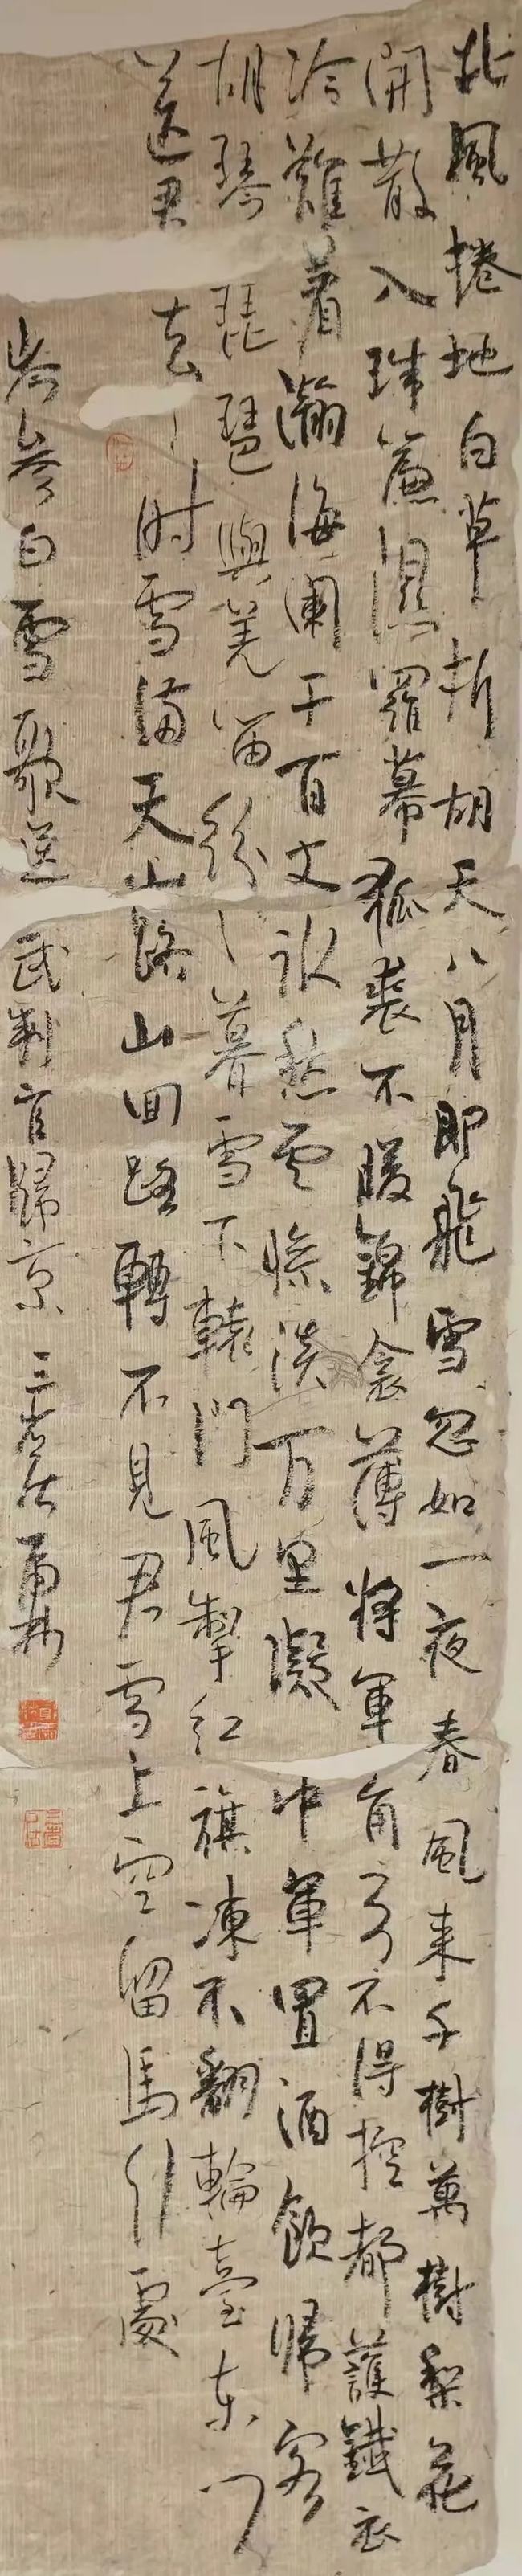 北風捲地白草折胡天八月即飛雪忽如一夜春風來千樹萬樹梨花
開散入珠簾濕羅幕狐裘不暖錦衾薄將軍角弓不得控都護鐵衣
冷難著瀚海闌干百丈冰愁雲慘淡万里凝中軍置酒飲歸客
胡琴琵琶與羌笛紛〻暮雪下轅門風掣紅旗凍不翻輪臺東门
送君去〻時雪滿天山路山回路轉不見君雪上空留馬行處
岑參白雪歌送武判官歸京三者居